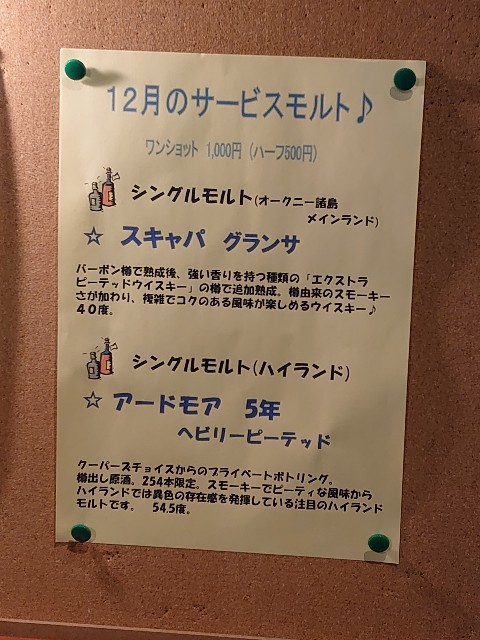 12月のサービスモルト♪
ワンショット 1,000円 (ハーフ500円)
シングルモルト(オークニー諸島
メインランド)
☆ スキャパ グランサ
バーボン樽で熟成後、強い香りを持つ種類の「エクストラ
ピーテッドウイスキー」の樽で追加熟成。樽由来のスモーキー
さが加わり、複雑でコクのある風味が楽しめるウイスキー♪
40度。
シングルモルト(ハイランド)
☆ アードモア 5年
ヘビリーピーテッド
クーパーズチョイスからのプライベートボトリング。
樽出し原酒。254本限定。スモーキーでピーティな風味から
ハイランドでは異色の存在感を発揮している注目のハイランド
モルトです。 54.5度。